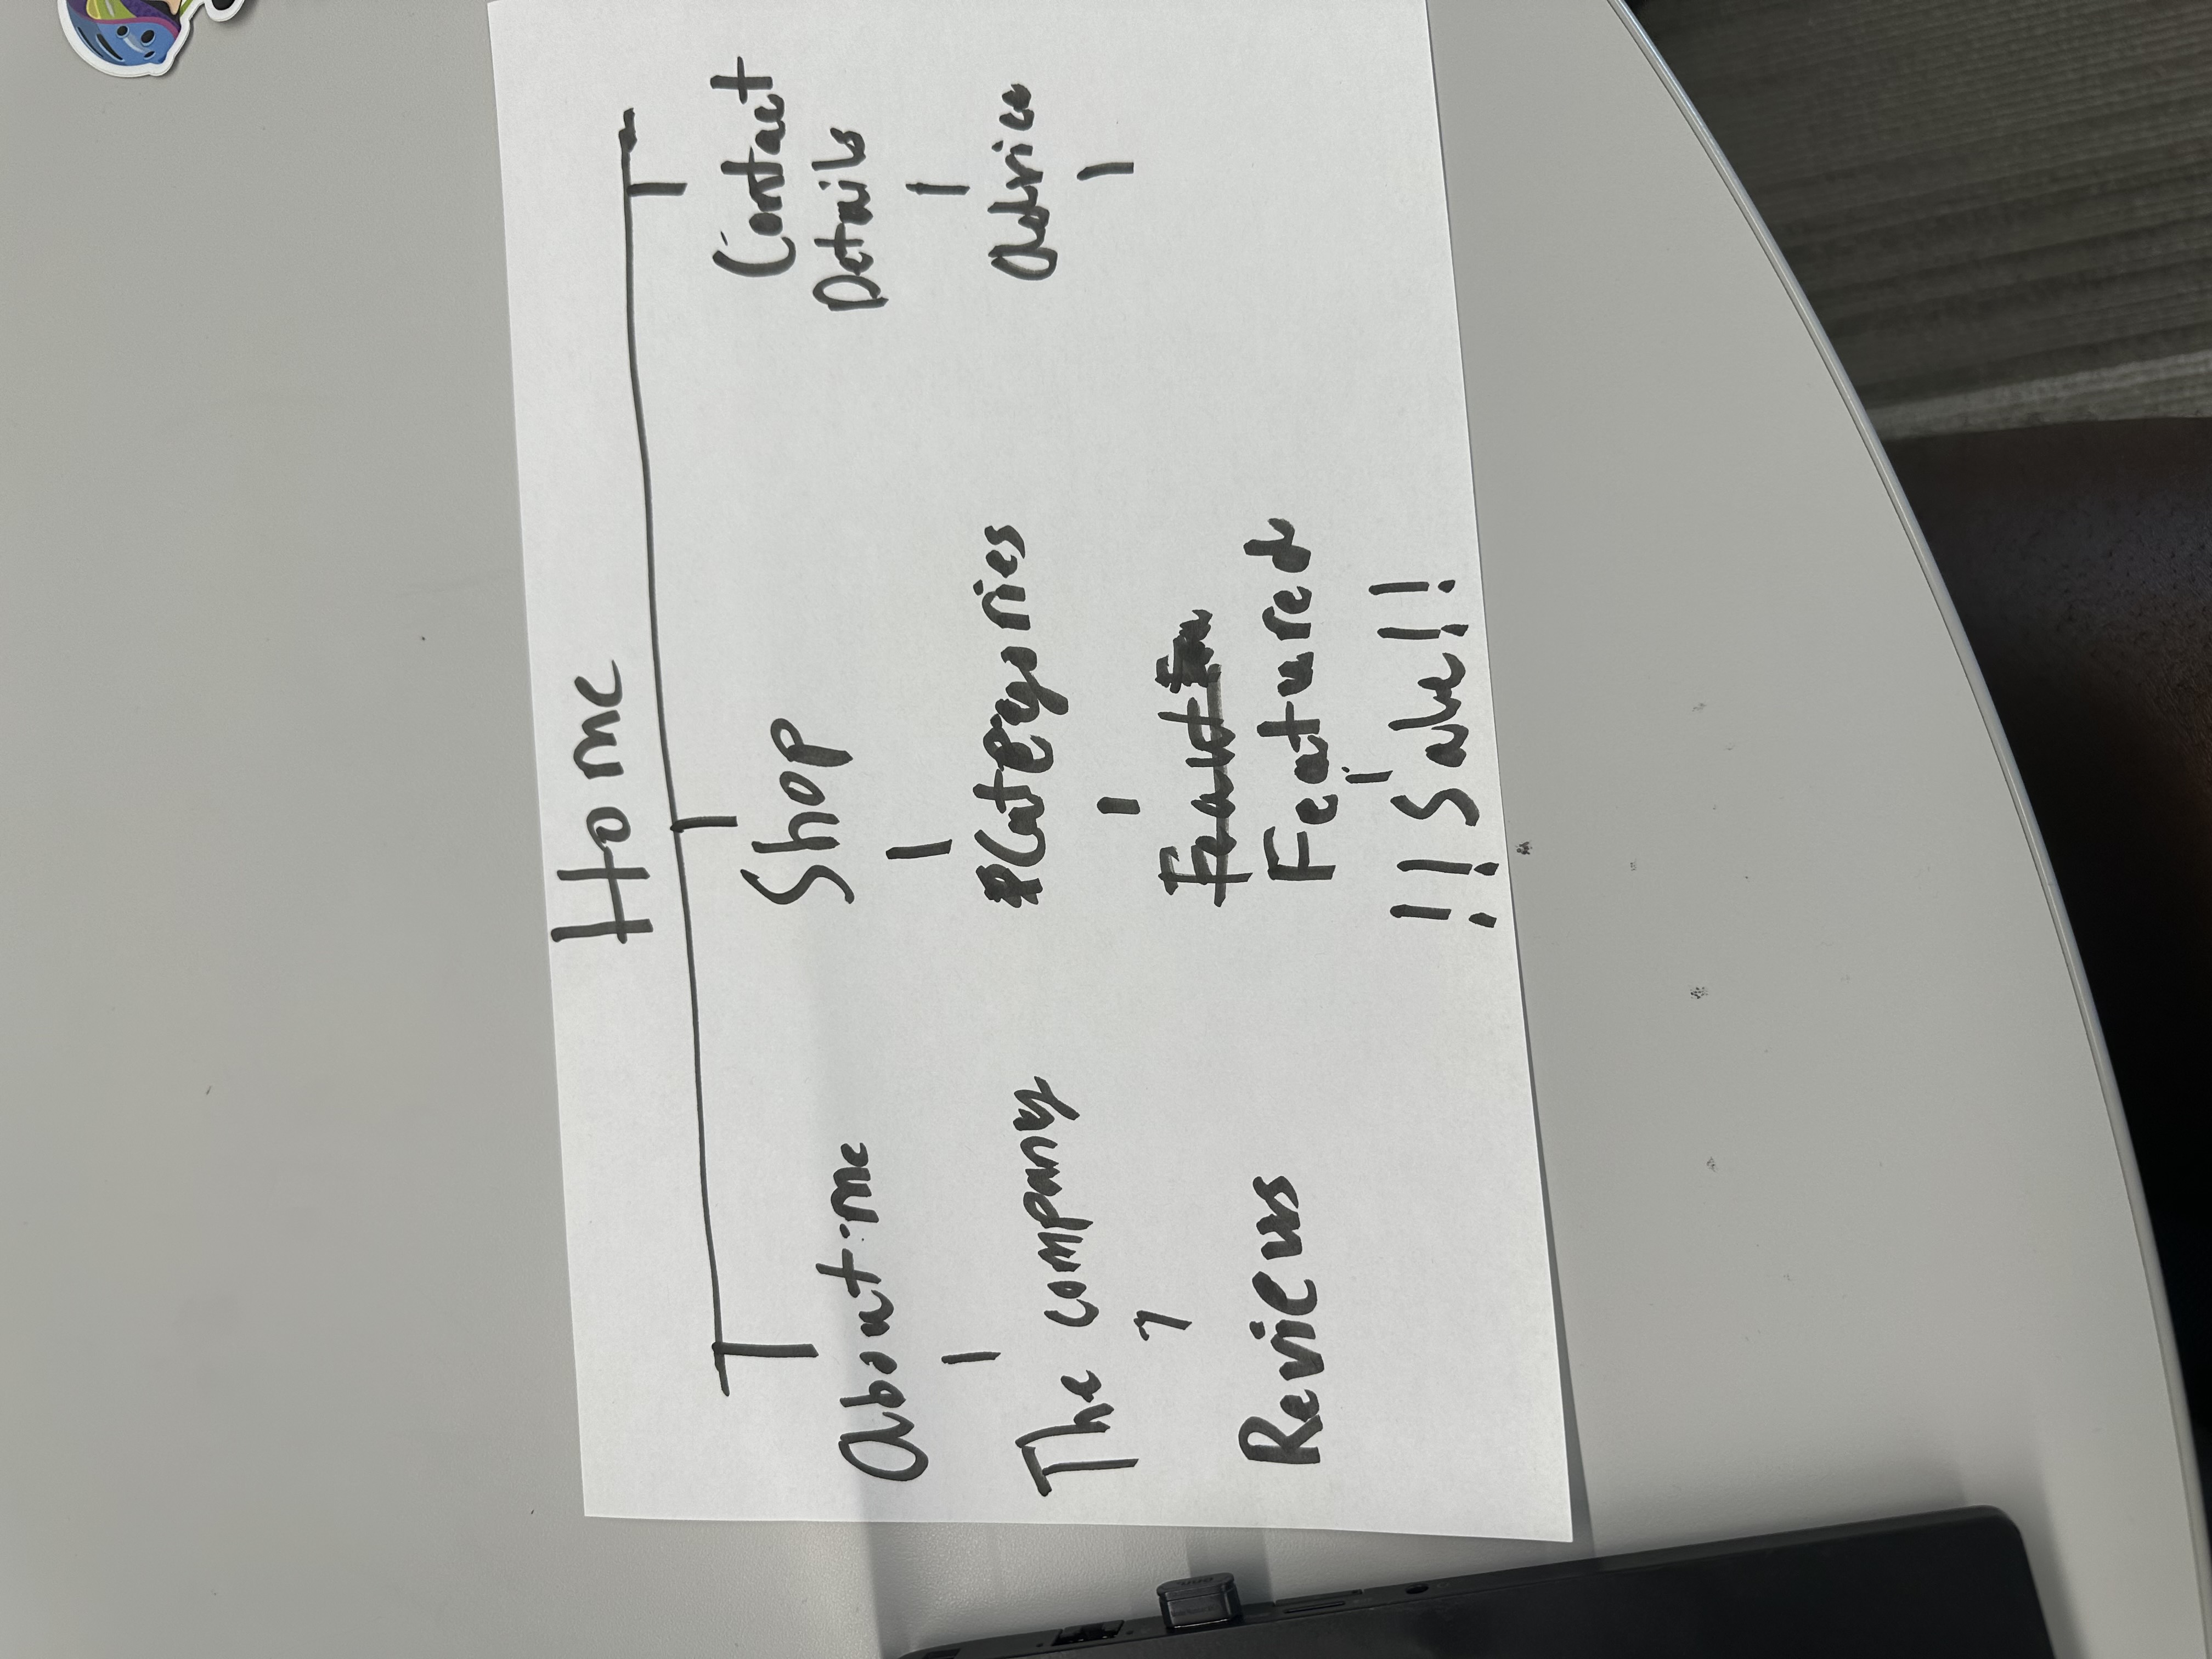 Home
About me
The company
Reviews
Shop
Categories
Featured
!! Sale !!
Contact
Details
Advice